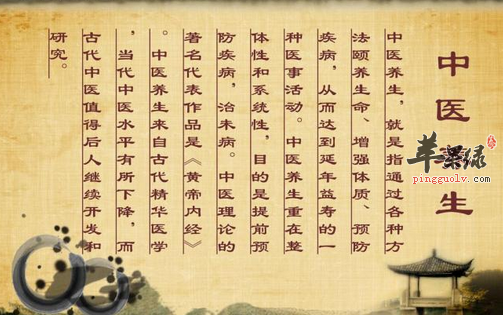 中医养生
中医养生，就是指通过各种方
法颐养生命、增强体质、预防
疾病，从而达到延年益寿的一
种医事活动。中医养生重在整
体性和系统性，目的是提前预
防疾病，治未病。中医理论的
著名代表作品是《黄帝内经》
。中医养生来自古代精华医学
，当代中医水平有所下降，而
古代中医值得后人继续开发和
研究。
苹果绿
pingguolv.com